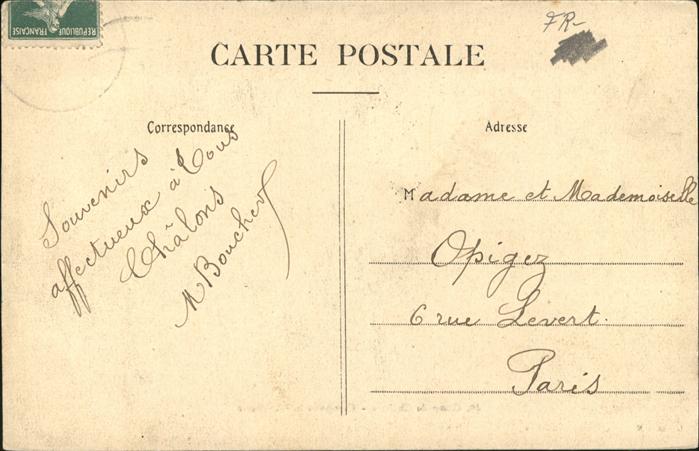 RÉPUBLIQUE FRANÇAISE
FR-
CARTE POSTALE
Correspondance
Adresse
Souvenirs
affectueux à tous
Châlons
M Boucher
Madame et Mademoiselle
Opigez
6 rue Levert.
Paris